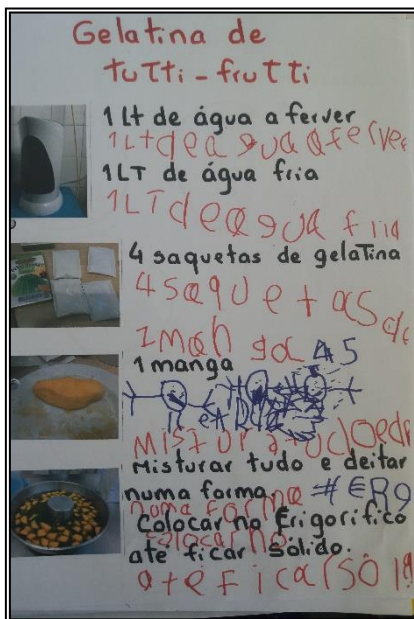 Gelatina de
tutti-frutti
1 Lt de água a ferver
1Lt de agua a ferver
1LT de água fria
1LT de agua fria
4 saquetas de gelatina
4 saquetas de
1 manga 45
1 manga
misturar tudo e d
Misturar tudo e deitar
numa forma. #€R9
numa forma
Colocar no frigorífico
colocar no
ate ficar sólido.
ate ficar sól